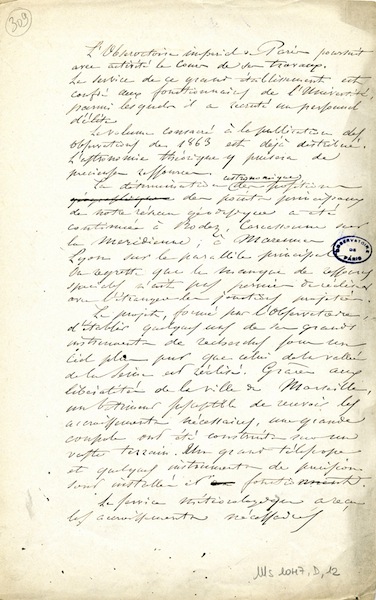 309
L'Observatoire impérial de Paris poursuit
avec activité le cours de ses travaux.
Le service de ce grand établissement est
confié aux fonctionnaires de l'Université,
parmi lesquels il a recruté un personnel
d'élite
Le volume consacré à la publication des
observations de 1863 est déjà distribué.
L'astronomie théorique y puisera de
précieuses ressources.
astronomique
La détermination des positions
géographiques des points principaux
de notre réseau géodésique a été
continuée à Rodez, Carcassonne sur
la méridienne ; à Marennes
Lyon sur le parallèle principal
On regrette que le manque de
spéciaux n'ait pas permis de
avec l'étranger les jonctions projetées.
Le projet, formé par l'Observatoire,
d'établir quelques uns de ses grands
instruments de recherches sous un
ciel plus pur que celui de la vallée
de la Seine est réalisé. Grâce aux
libéralités de la ville de Marseille,
un batiment susceptible de recevoir les
accroissements nécessaires, une grande
coupole ont été construits sur un
vaste terrain. Un grand télescope
et quelques instruments de précision
sont installés et fonctionnent.
Le service météorologique a reçu
les accroissements nécessaires
OBSERVATOIRE
DE
PARIS
Ms 1047, D, 12